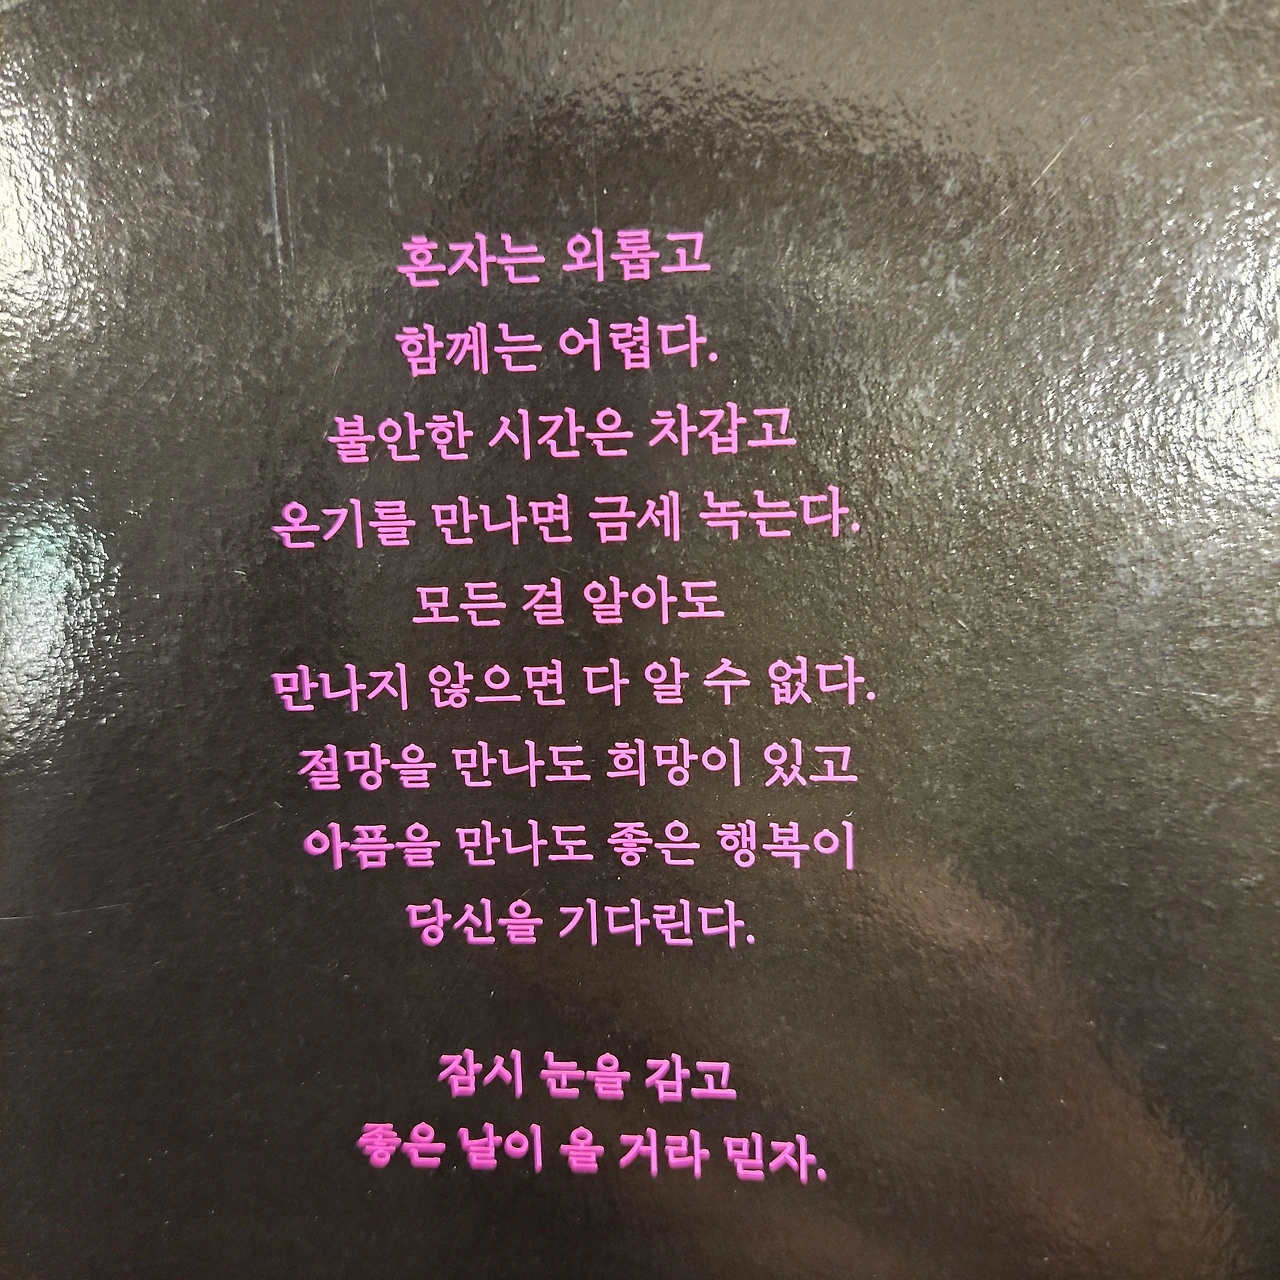 혼자는 외롭고
함께는 어렵다.
불안한 시간은 차갑고
온기를 만나면 금세 녹는다.
모든 걸 알아도
만나지 않으면 다 알 수 없다.
절망을 만나도 희망이 있고
아픔을 만나도 좋은 행복이
당신을 기다린다.
잠시 눈을 감고
좋은 날이 올 거라 믿자.